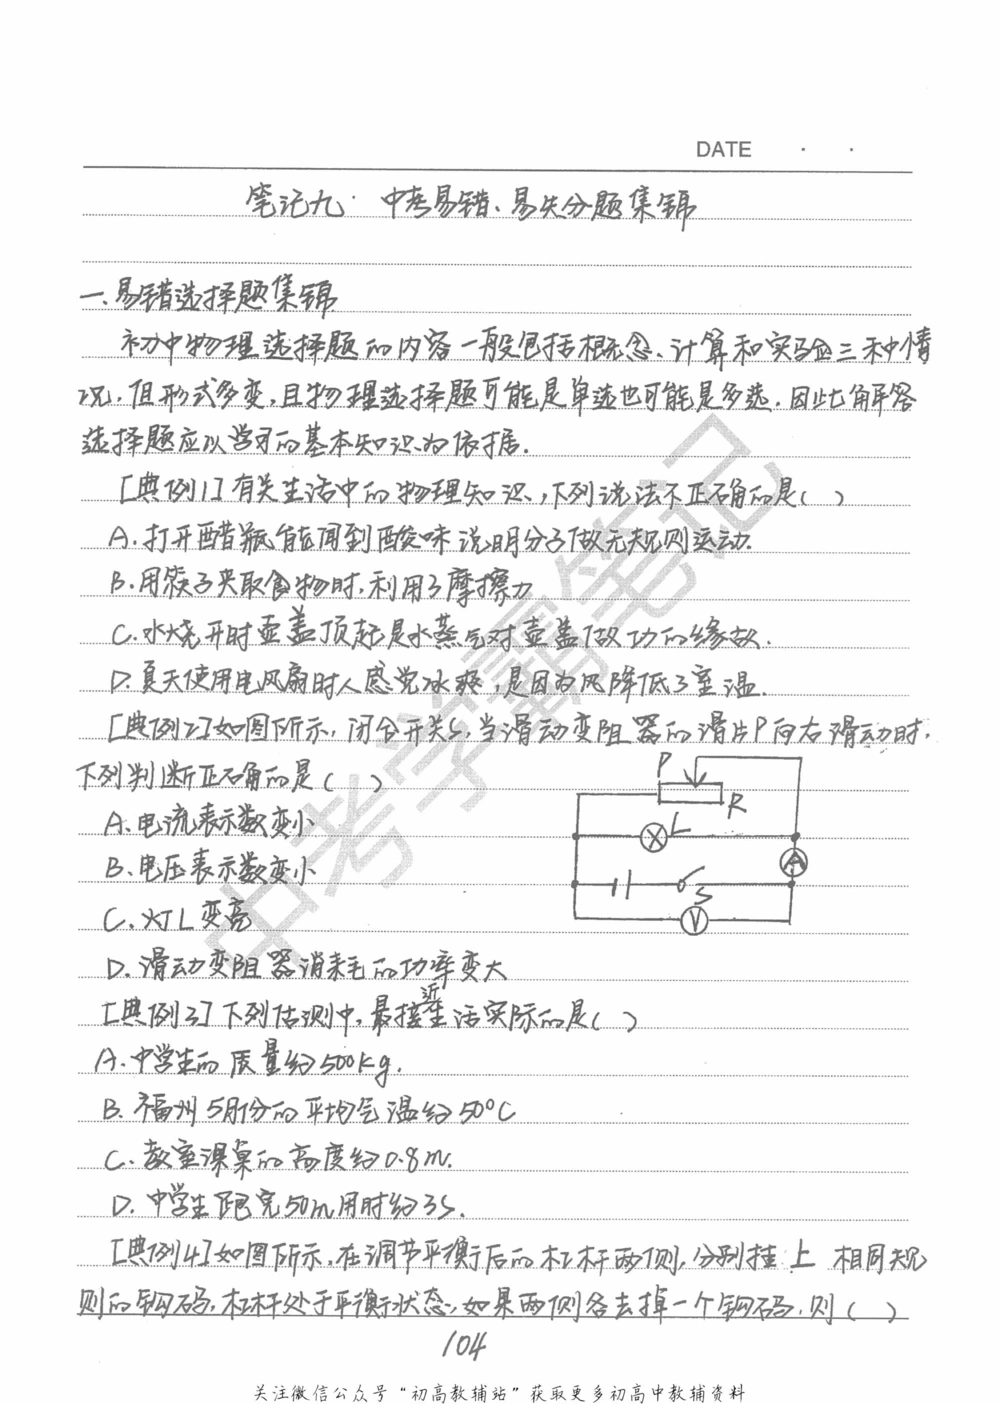 DATE · ·
笔记九·中考易错、易失分题集锦
一.易错选择题集锦
初中物理选择题的内容一般包括概念、计算和实验三种情
况,但形式多变,且物理选择题可能是单选也可能是多选.因此解答
选择题应以学习的基本知识为依据.
[典例1]有关生活中的物理知识,下列说法不正确的是( )
A.打开醋瓶能闻到酸味说明分子做无规则运动.
B.用筷子夹取食物时,利用了摩擦力
C.水烧开时壶盖顶起是水蒸气对壶盖做功的缘故.
D.夏天使用电风扇时人感觉冰爽,是因为风降低了室温.
[典例2]如图所示,闭合开关S,当滑动变阻器的滑片P向右滑动时,
下列判断正确的是( )
P
R
L
A
S
V
A.电流表示数变小
B.电压表示数变小
C.灯L变亮
D.滑动变阻器消耗的功率变大
[典例3]下列估测中,最接近生活实际的是( )
A.中学生的质量约500kg.
B.福州5月份的平均气温约50°C
C.教室课桌的高度约0.8m.
D.中学生跑完50m用时约3s.
[典例4]如图所示,在调节平衡后的杠杆两侧,分别挂上 相同规
则的钩码,杠杆处于平衡状态,如果两侧各去掉一个钩码,则( )
104
关注微信公众号“初高教辅站”获取更多初高中教辅资料
中考学霸笔记